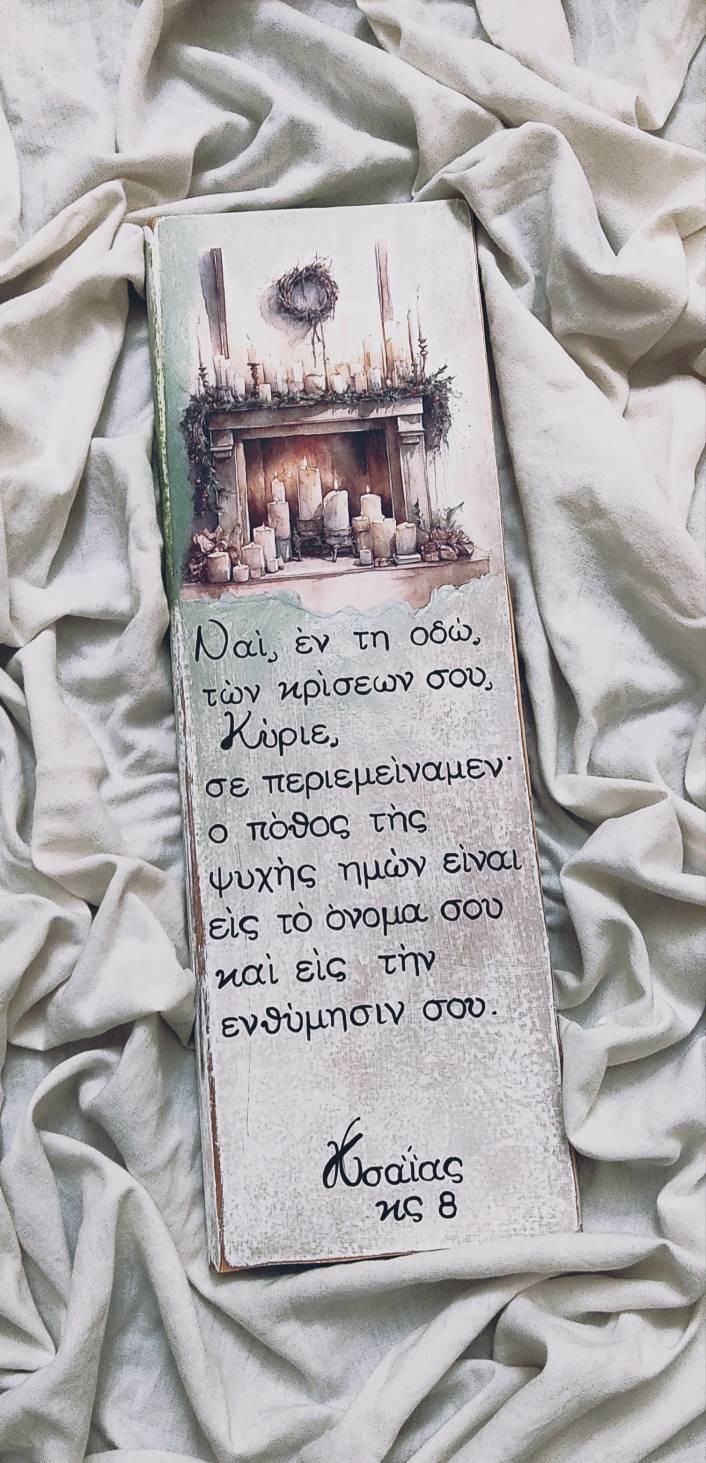 Ναὶ, ὲν τη οδώ,
τὼν κρὶσεων σου,
Κὺριε,
σε περιεμεὶναμεν·
ο πὸθος τὴς
ψυχὴς ημὼν εὶναι
εὶς τὸ ὸνομα σου
καὶ εὶς τὴν
ενθὺμησιν σου.
Ησαΐας
κς 8